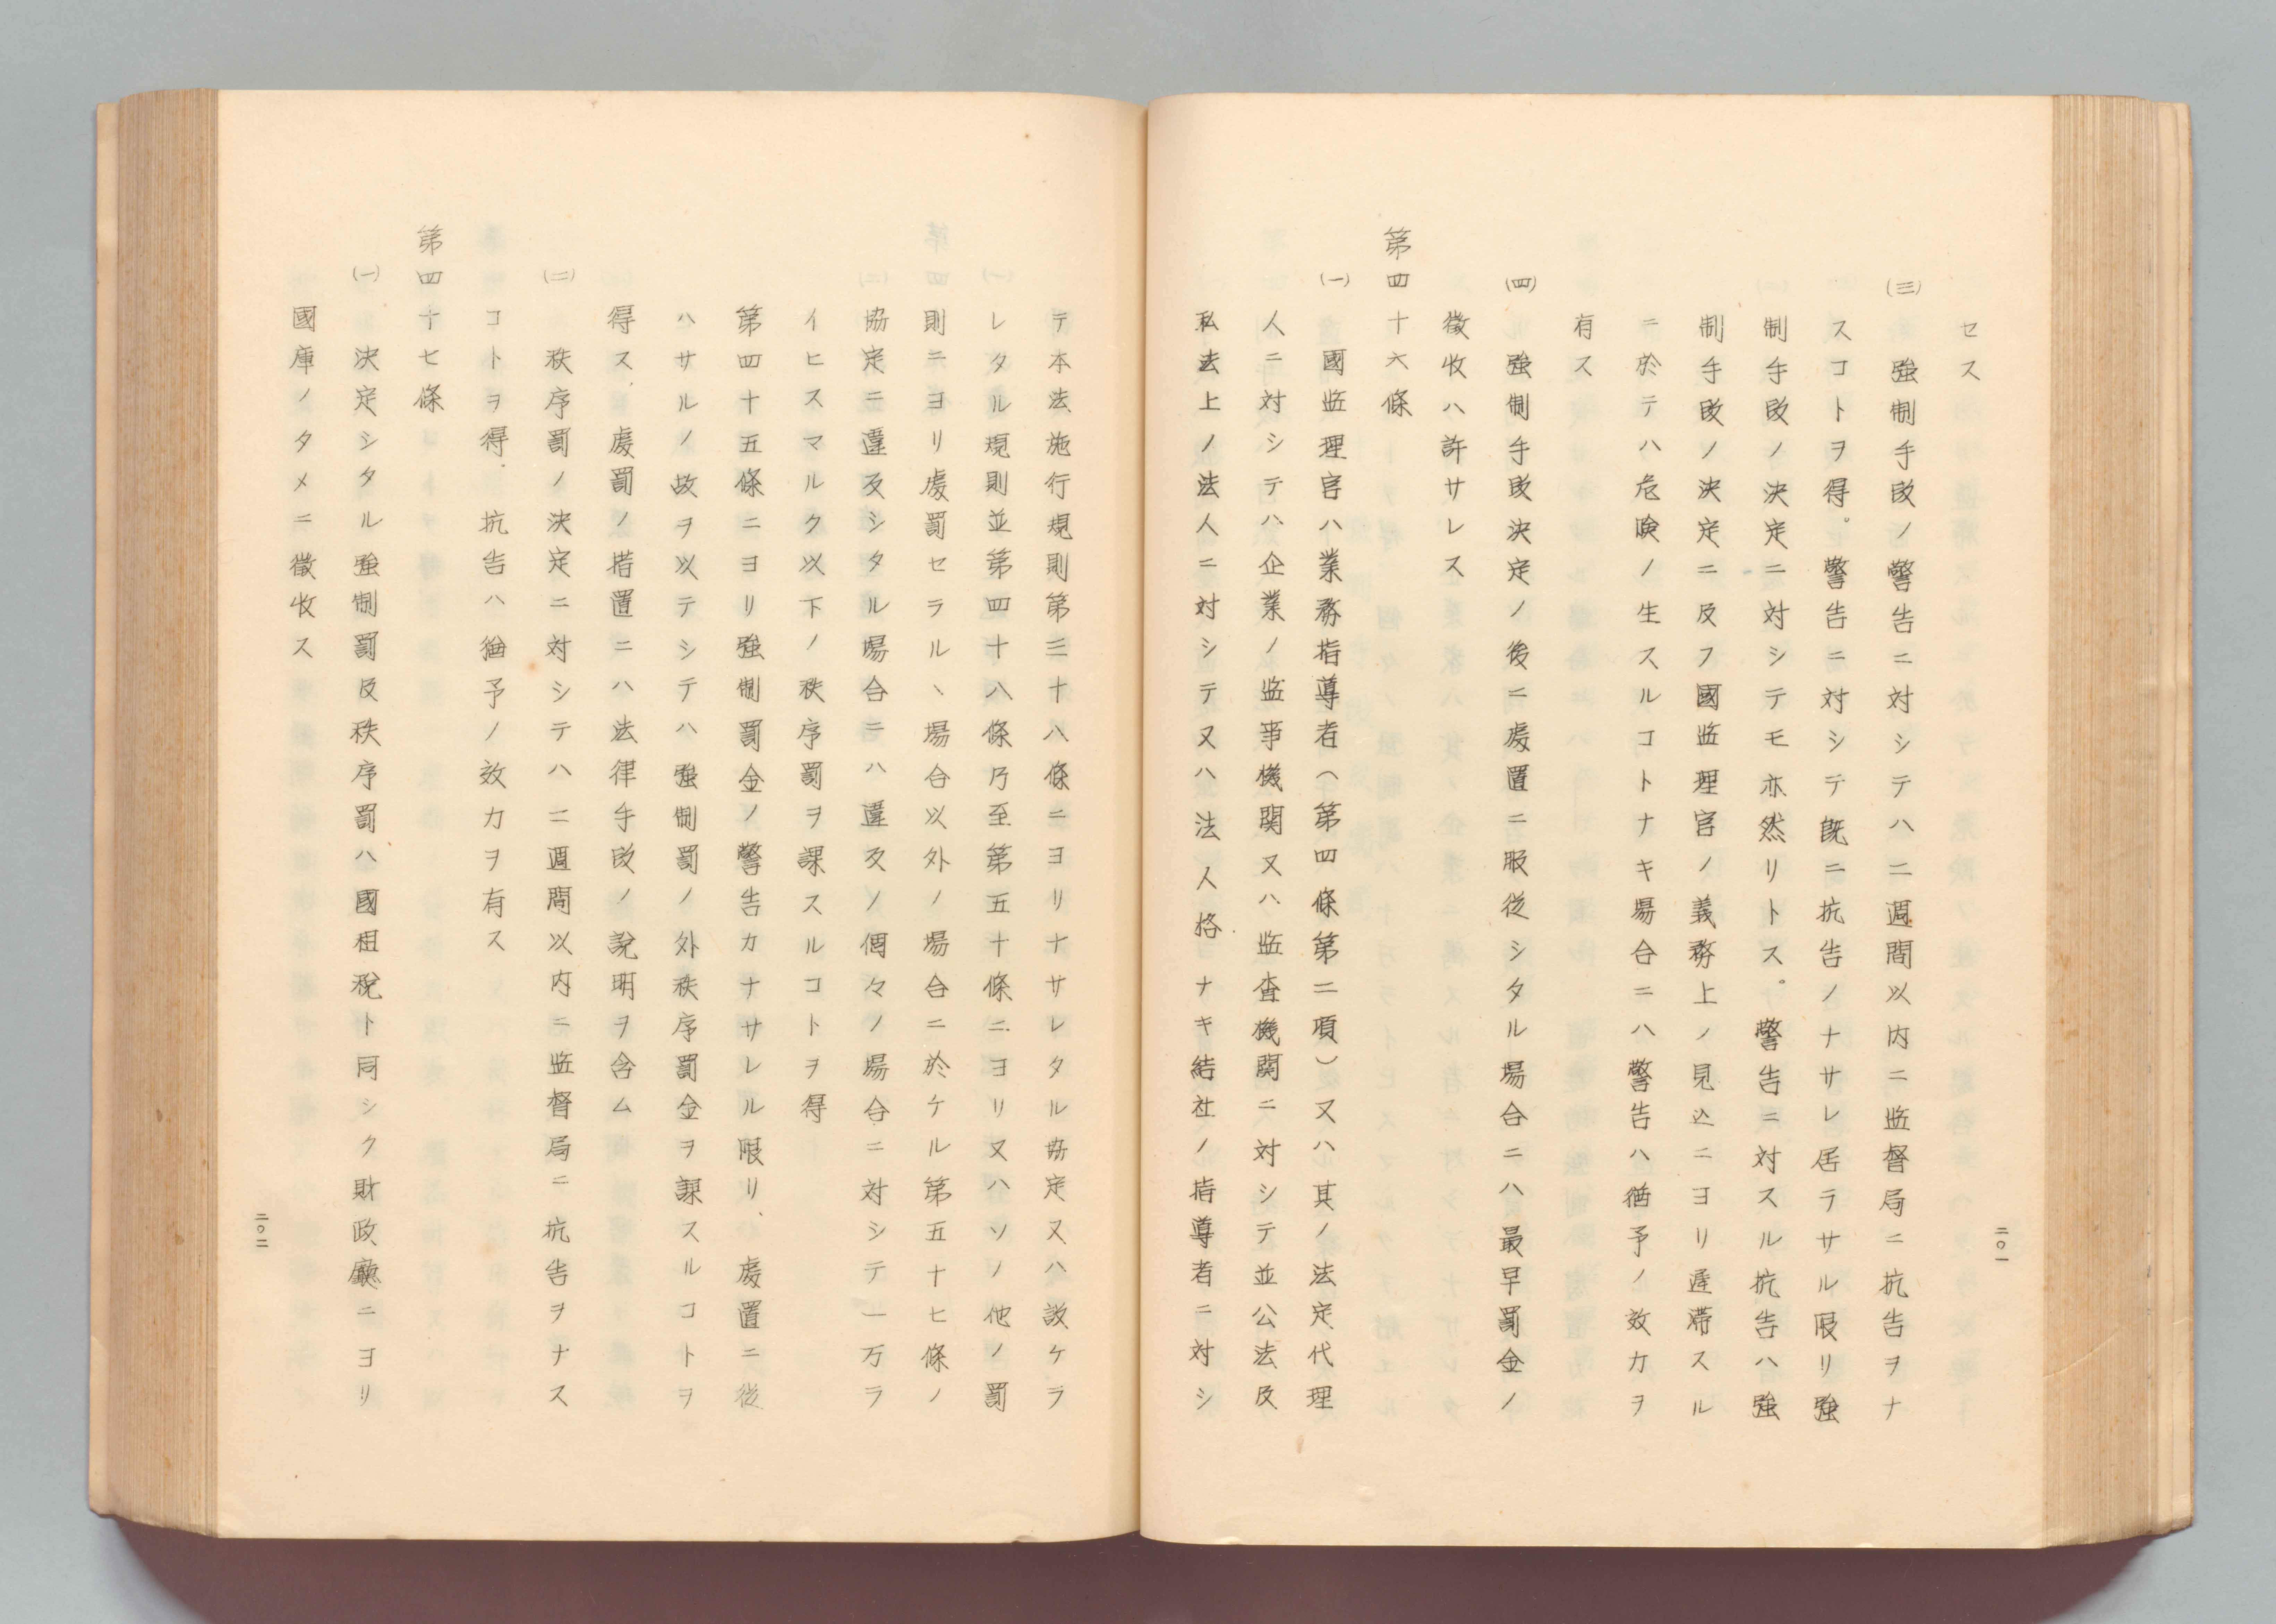 セス
(三) 強制手段ノ警告ニ対シテハ二週間以内ニ監督局ニ抗告ヲナ
スコトヲ得。警告ニ対シテ既ニ抗告ノナサレ居ラサル限リ強
制手段ノ決定ニ対シテモ亦然リトス。警告ニ対スル抗告ハ強
制手段ノ決定ニ反フ國監理官ノ義務上ノ見込ニヨリ遅滞スル
ニ於テハ危険ノ生スルコトナキ場合ニハ警告ハ猶予ノ效力ヲ
有ス
(四) 強制手段決定ノ後ニ處置ニ服従シタル場合ニハ最早罰金ノ
徴收ハ許サレス
第四十六條
(一) 國監理官ハ業務指導者(第四條第二項)又ハ其ノ法定代理
人ニ対シテハ企業ノ監事機関又ハ監査機関ニ対シテ並公法及
私法上ノ法人ニ対シテ又ハ法人格ナキ結社ノ指導者ニ対シ
二〇一
テ本法施行規則第三十八條ニヨリナサレタル協定又ハ設ケラ
レタル規則並第四十八條乃至第五十條ニヨリ又ハソノ他ノ罰
則ニヨリ處罰セラルヽ場合以外ノ場合ニ於ケル第五十七條ノ
協定ニ違反シタル場合ニハ違反ノ個々ノ場合ニ対シテ一万ラ
イヒスマルク以下ノ秩序罰ヲ課スルコトヲ得
第四十五條ニヨリ強制罰金ノ警告カナサレル限リ、處置ニ従
ハサルノ故ヲ以テシテハ強制罰ノ外秩序罰金ヲ課スルコトヲ
得ス、處罰ノ措置ニハ法律手段ノ説明ヲ含ム
(二) 秩序罰ノ決定ニ対シテハ二週間以内ニ監督局ニ抗告ヲナス
コトヲ得、抗告ハ猶予ノ效力ヲ有ス
第四十七條
(一) 決定シタル強制罰及秩序罰ハ國租税ト同シク財政廳ニヨリ
國庫ノタメニ徴收ス
二〇二